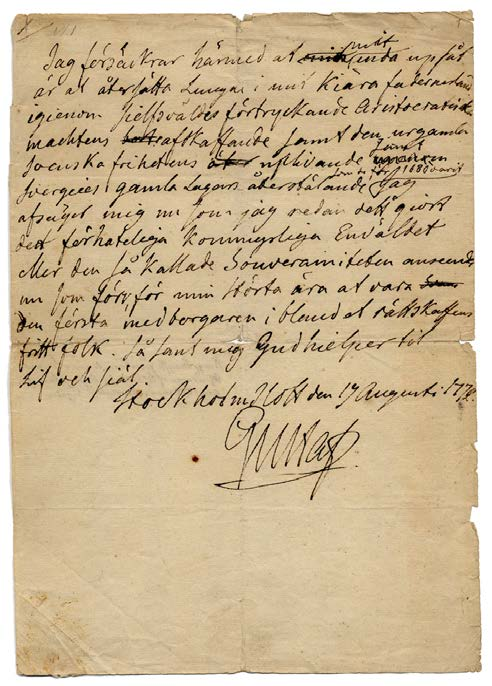 Jag försäckrar härmed at mitt
enda upsåt
är at återsätta Lugn i mit kiära fädernesland
igienom sielfsväldes förtryckande Aristocratiska
machtens afskaffande samt den urgamla
svenska frihetens uplivande samt
Sverges gamla Lagars återstälande som de för 1680 varit
Jag
afsäger mig nu som jag redan dett giort
dett förhateliga konungsliga Enväldet
eller den så kallade Souverainiteten anseendes
nu som förr för min största ära at vara
den första medborgaren i bland et rättskaffens
fritt folk. Så sant mig Gud hielpe til
lif och siäl.
Stockholms slott den 17 Augusti 1772.
Gustaf